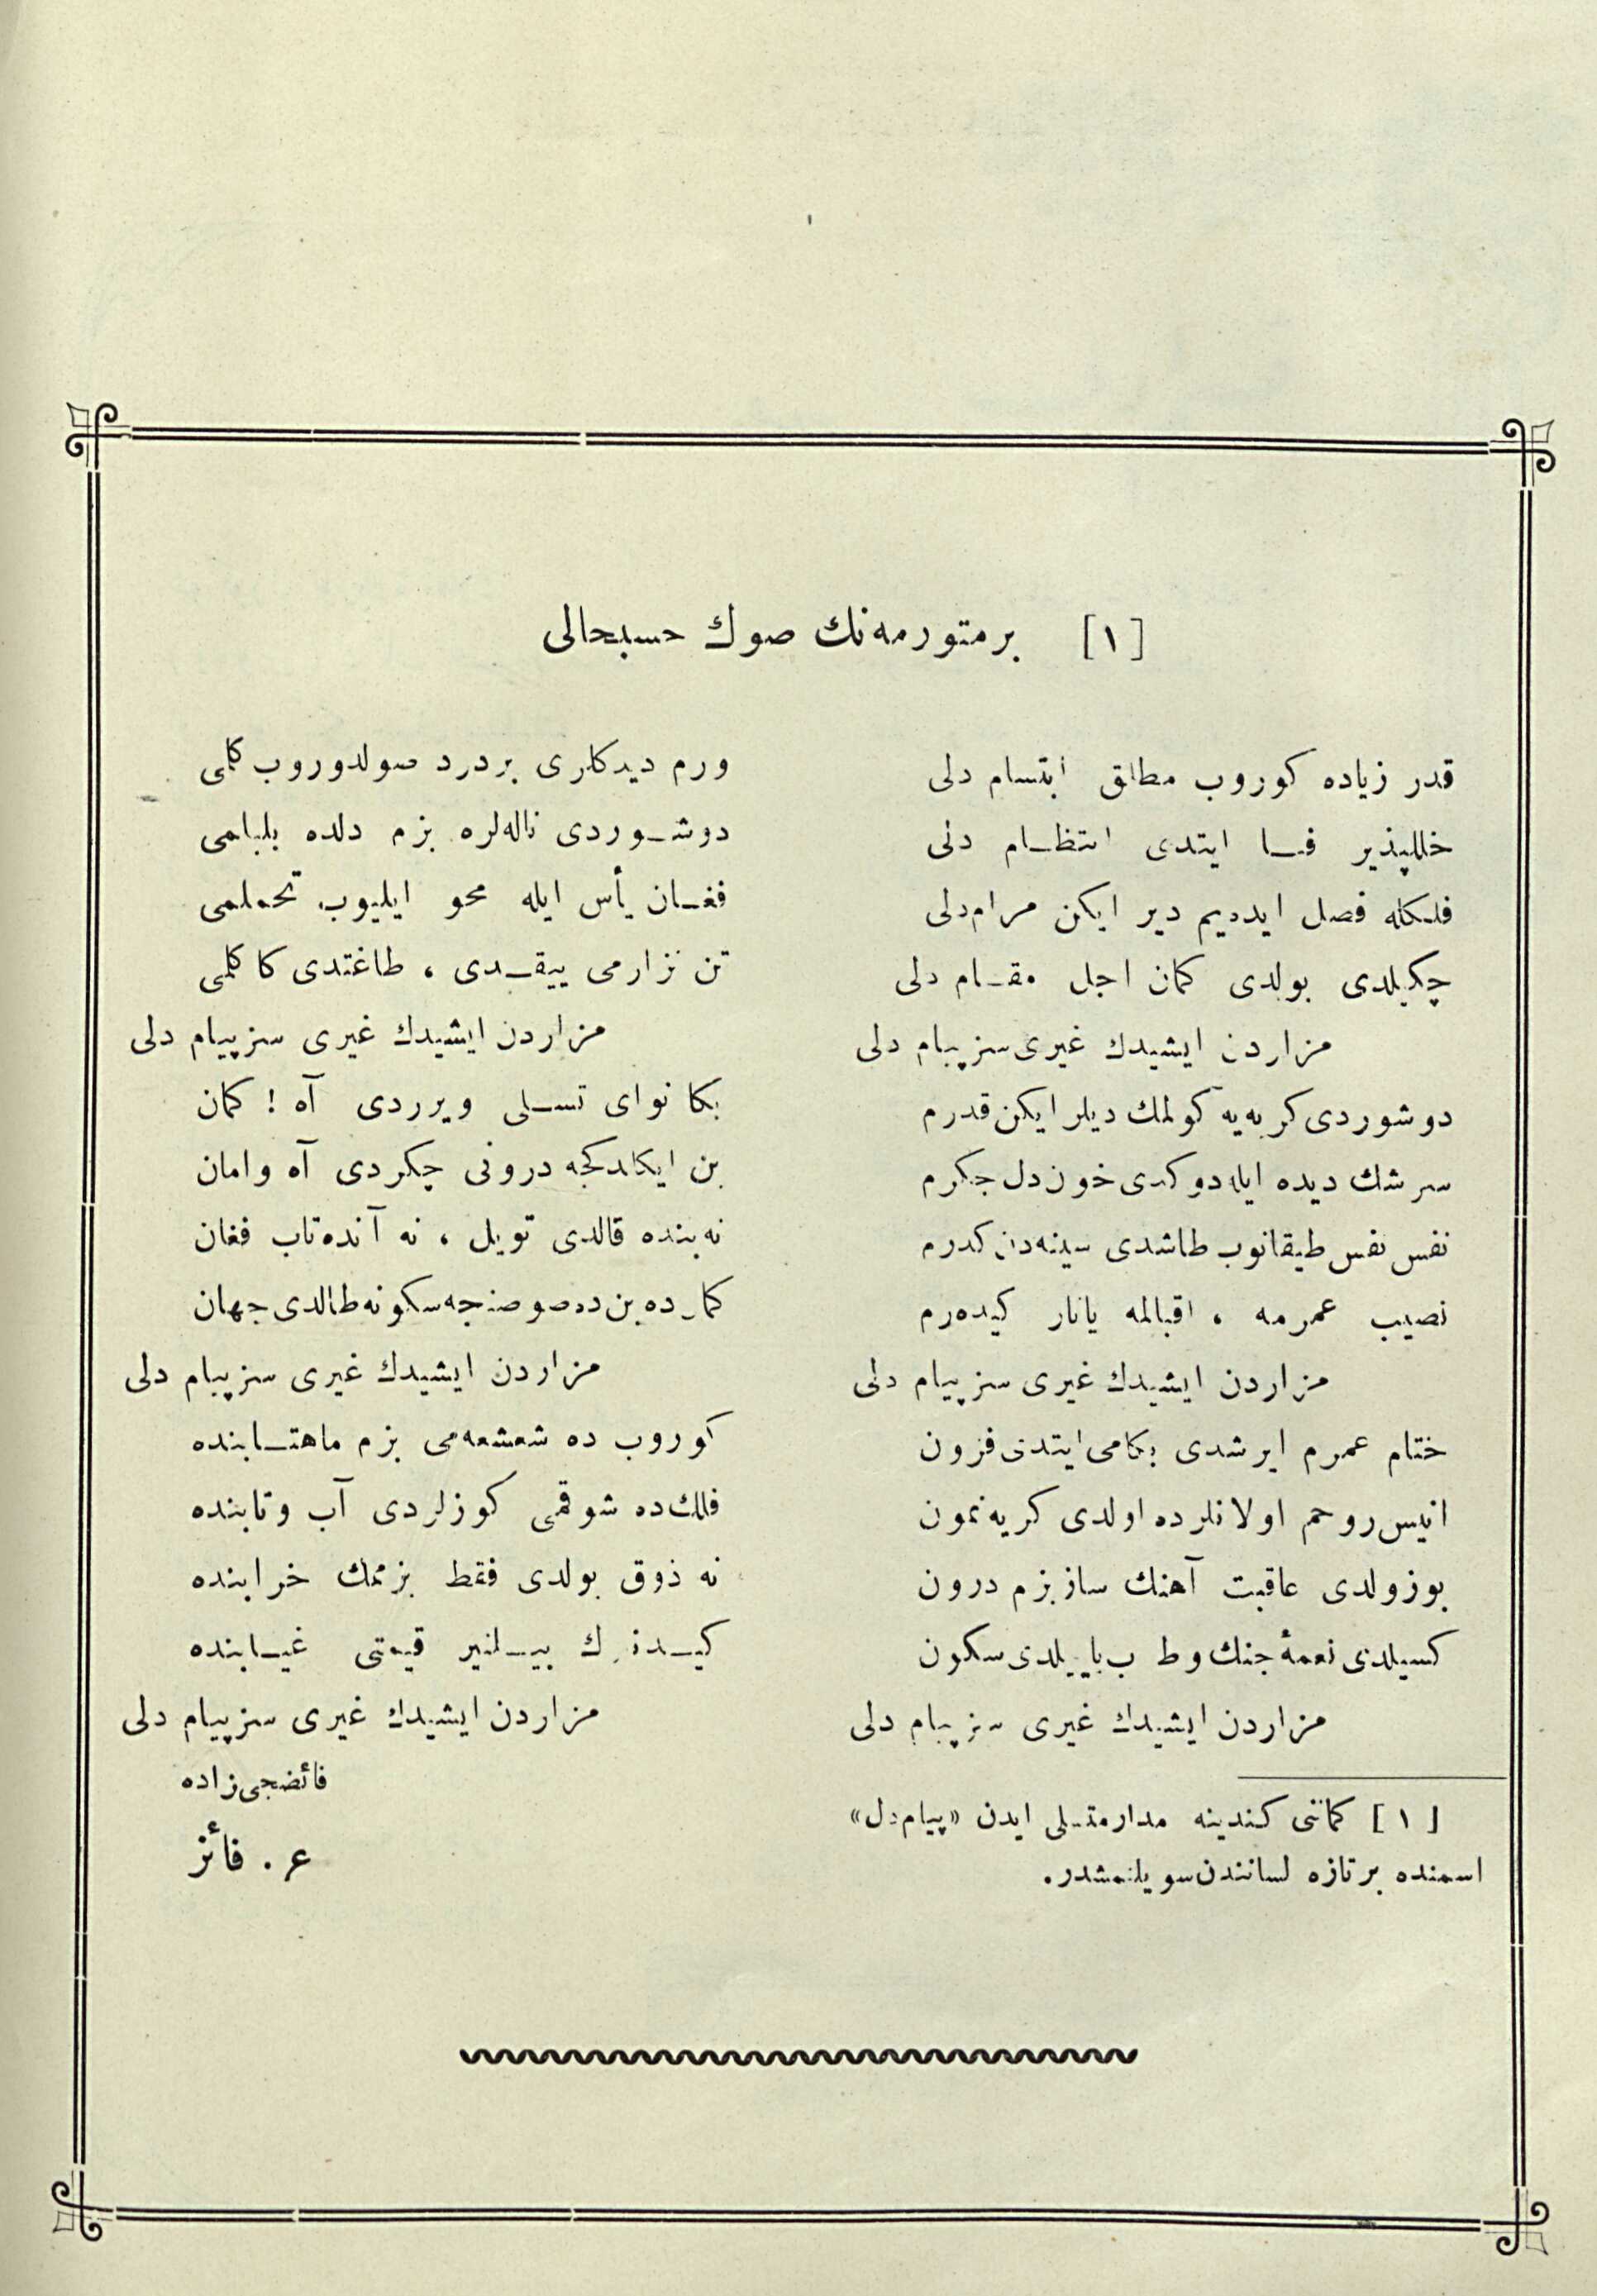 [١] برمتورمه‌نك صوك حسبحالی
قدر زیاده كوروب مطلق ابتسام دلی
خللپذیر فنا ایتدی انتظام دلی
فلكله فصل ایده‌دیم دیر ایكن مرام دلی
چكیلدی بولدی كمان اجل مقام دلی
مزاردن ایشیدك غیری سز پیام دلی
دوشوردی كریه‌یه كولمك دیلر ایكن قدرم
سرشك دیده ایله دوكدی خون دل جكرم
نفس نفس طیقانوب طاشدی سینه‌دن كدرم
نصیب عمرمه ، اقبالمه یانار كیده‌رم
مزاردن ایشیدك غیری سز پیام دلی
ختام عمرم ایرشدی بكامی ایتدی فزون
انیس روحم اولانلرده اولدی كریه نمون
بوزولدی عاقبت آهنك ساز بزم درون
كسیلدی نغمهٔ جنك و ط ب یاییلدی سكون
مزاردن ایشیدك غیری سز پیام دلی
[١] كماننی كندینه مدار متسلی ایدن «پیام دل»
اسمنده بر تازه لسانندن سویلنمشدر.
ورم دیدكلری بردرد صولدوروب كلمی
دوشوردی ناله‌لره بزم دلده بلبلمی
فغان یأس ایله محو ایلیوب تحملمی
تن نزارمی ییقدی ، طاغتدی كاكلمی
مزاردن ایشیدك غیری سز پیام دلی
بكا نوای تسلی ویرردی آه ! كمان
بن ایكلدكجه درونی چكردی آه وامان
نه‌بنده قالدی تویل ، نه آنده تاب فغان
كمان ده بن ده صوصنجه سكونه طالدی جهان
مزاردن ایشیدك غیری سز پیام دلی
كوروب ده شعشعه‌می بزم ماهتابنده
فلك ده شوقمی كوزلردی آب وتابنده
نه ذوق بولدی فقط بزممك خرابنده
كیدنلرك بیلنیر قیمتی غیابنده
مزاردن ایشیدك غیری سز پیام دلی
فائضجی زاده
ع . فائز